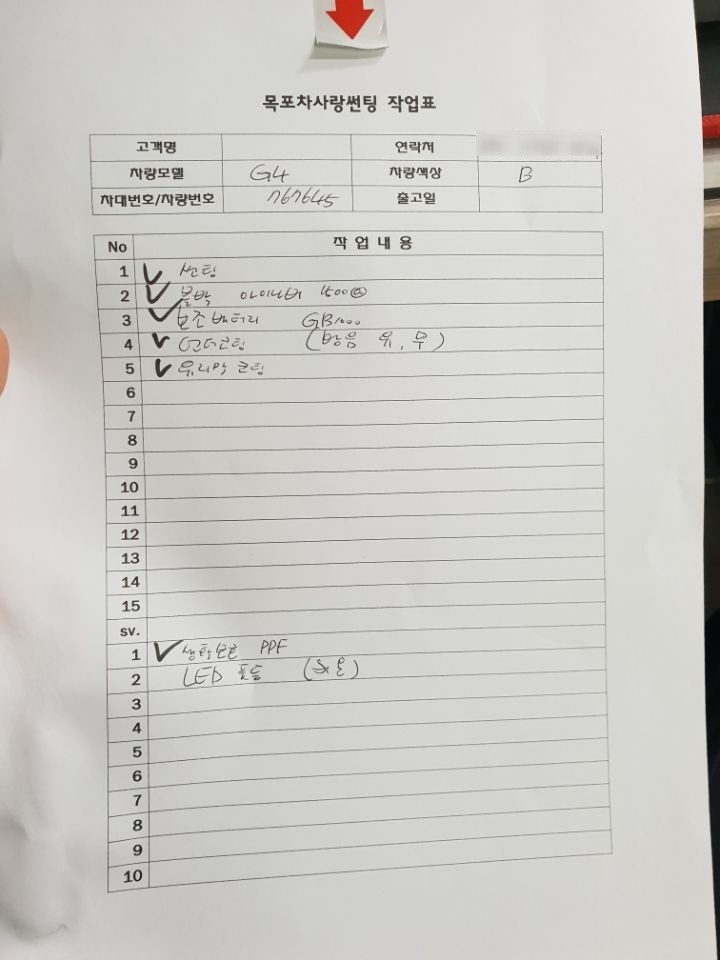 목포차사랑썬팅 작업표
고객명 연락처
차량모델 G4 차량색상 B
차대번호/차량번호 767645 출고일
No 작업내용
1 썬팅
2 블박 아이나비
3 보조배터리 GB1000
4 언더코팅 (방음 유, 무)
5 유리막 코팅
6
7
8
9
10
11
12
13
14
15
sv.
1 생활보호 PPF
2 LED
3
4
5
6
7
8
9
10